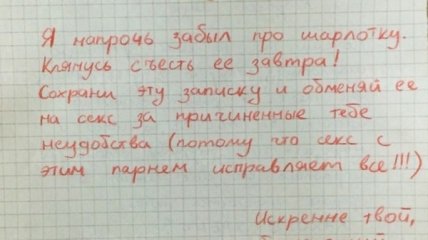 Я напрочь забыл про шарлотку.
Клянусь съесть ее завтра!
Сохрани эту записку и обменяй ее
на секс за причиненные тебе
неудобства (потому что секс с
этим парнем исправляет все!!!)
Искренне твой,